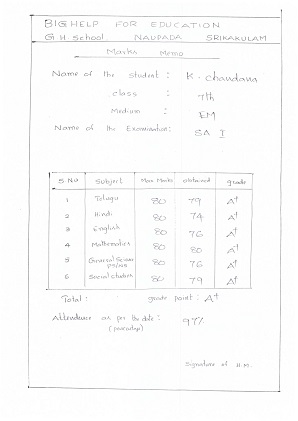 BIGHELP FOR EDUCATION
G.H. School. NAUPADA SRIKAKULAM
Marks Memo
Name of the student : K. Chandana
class : 7th
Medium : EM
Name of the Examination: SA I
S.No Subject Max Marks obtained grade
1 Telugu 80 79 A+
2 Hindi 80 74 A+
3 English 80 76 A+
4 Mathematics 80 80 A+
5 General Science 80 76 A+
6 Social studies 80 79 A+
Total: grade point: A+
Attendence as per the date : 97%
(percentage)
Signature of H.M.